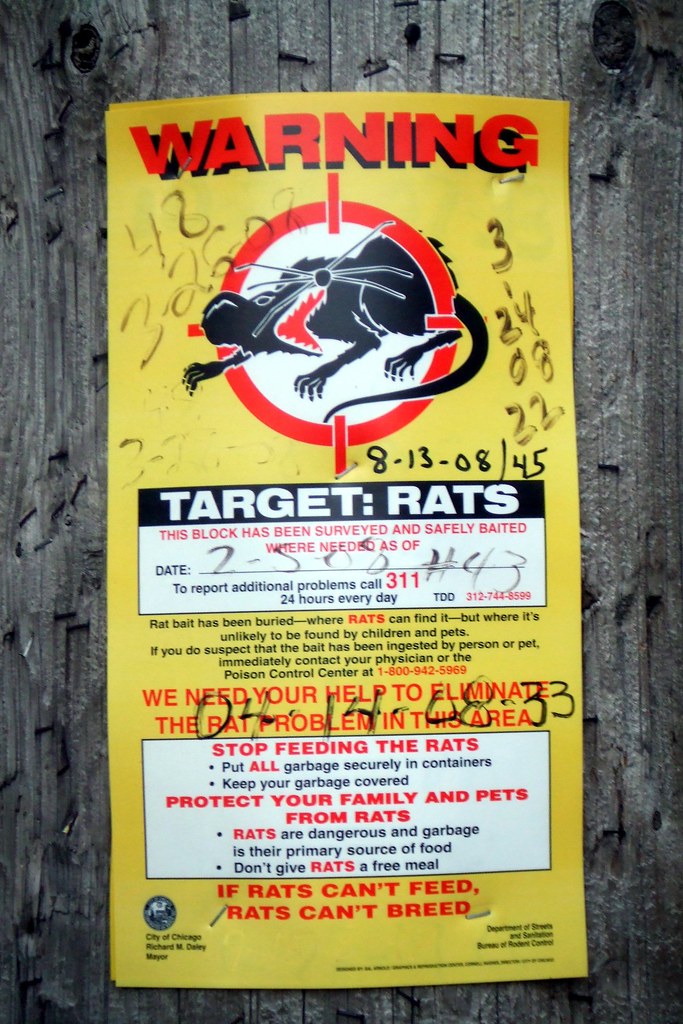 WARNING
48
3
24
08
22
8-13-08/45
TARGET: RATS
THIS BLOCK HAS BEEN SURVEYED AND SAFELY BAITED
WHERE NEEDED AS OF
DATE: 2-5-08 #43
To report additional problems call 311
24 hours every day TDD 312-744-8599
Rat bait has been buried—where RATS can find it—but where it's
unlikely to be found by children and pets.
If you do suspect that the bait has been ingested by person or pet,
immediately contact your physician or the
Poison Control Center at 1-800-942-5969
WE NEED YOUR HELP TO ELIMINATE
THE RAT PROBLEM IN THIS AREA
04-14-08-33
STOP FEEDING THE RATS
• Put ALL garbage securely in containers
• Keep your garbage covered
PROTECT YOUR FAMILY AND PETS
FROM RATS
• RATS are dangerous and garbage
is their primary source of food
• Don't give RATS a free meal
IF RATS CAN'T FEED,
RATS CAN'T BREED
City of Chicago
Richard M. Daley
Mayor
Department of Streets
and Sanitation
Bureau of Rodent Control